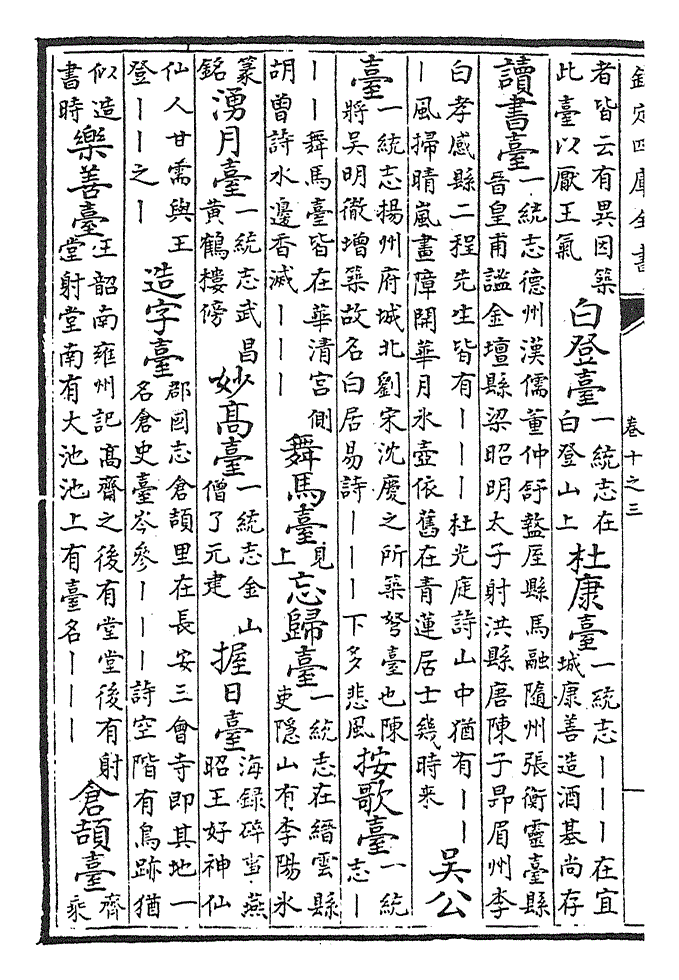 欽定四庫全書 卷十之三
者皆云有異因築此臺以厭王氣 白登臺 一統志在白登山上 杜康臺 一統志｜｜｜在宜城康善造酒基尚存
讀書臺 一統志德州漢儒董仲舒盩厔縣馬融隨州張衡靈臺縣晉皇甫謐金壇縣梁昭明太子射洪縣唐陳子昻眉州李
白孝感縣二程先生皆有｜｜｜杜光庭詩山中猶有｜｜｜風掃晴嵐畫障開華月氷壺依舊在青蓮居士幾時來 吳公
臺 一統志揚州府城北劉宋沈慶之所築弩臺也陳將吴明徹增築故名白居易詩｜｜｜下多悲風 按歌臺 一統志｜
｜｜舞馬臺皆在華清宫側胡曾詩水邊香滅｜｜｜ 舞馬臺 見上 忘歸臺 一統志在縉雲縣吏隱山有李陽氷
篆銘 湧月臺 一統志武昌黄鶴樓傍 妙髙臺 一統志金山僧了元建 握日臺 海録碎事燕昭王好神仙
仙人甘需與王登｜｜之｜ 造字臺 郡國志倉頡里在長安三會寺即其地一名倉史臺岑參｜｜｜詩空階有鳥跡猶
似造書時 樂善臺 王韶南雍州記髙齋之後有堂堂後有射堂射堂南有大池池上有臺名｜｜｜ 倉頡臺 齊乘